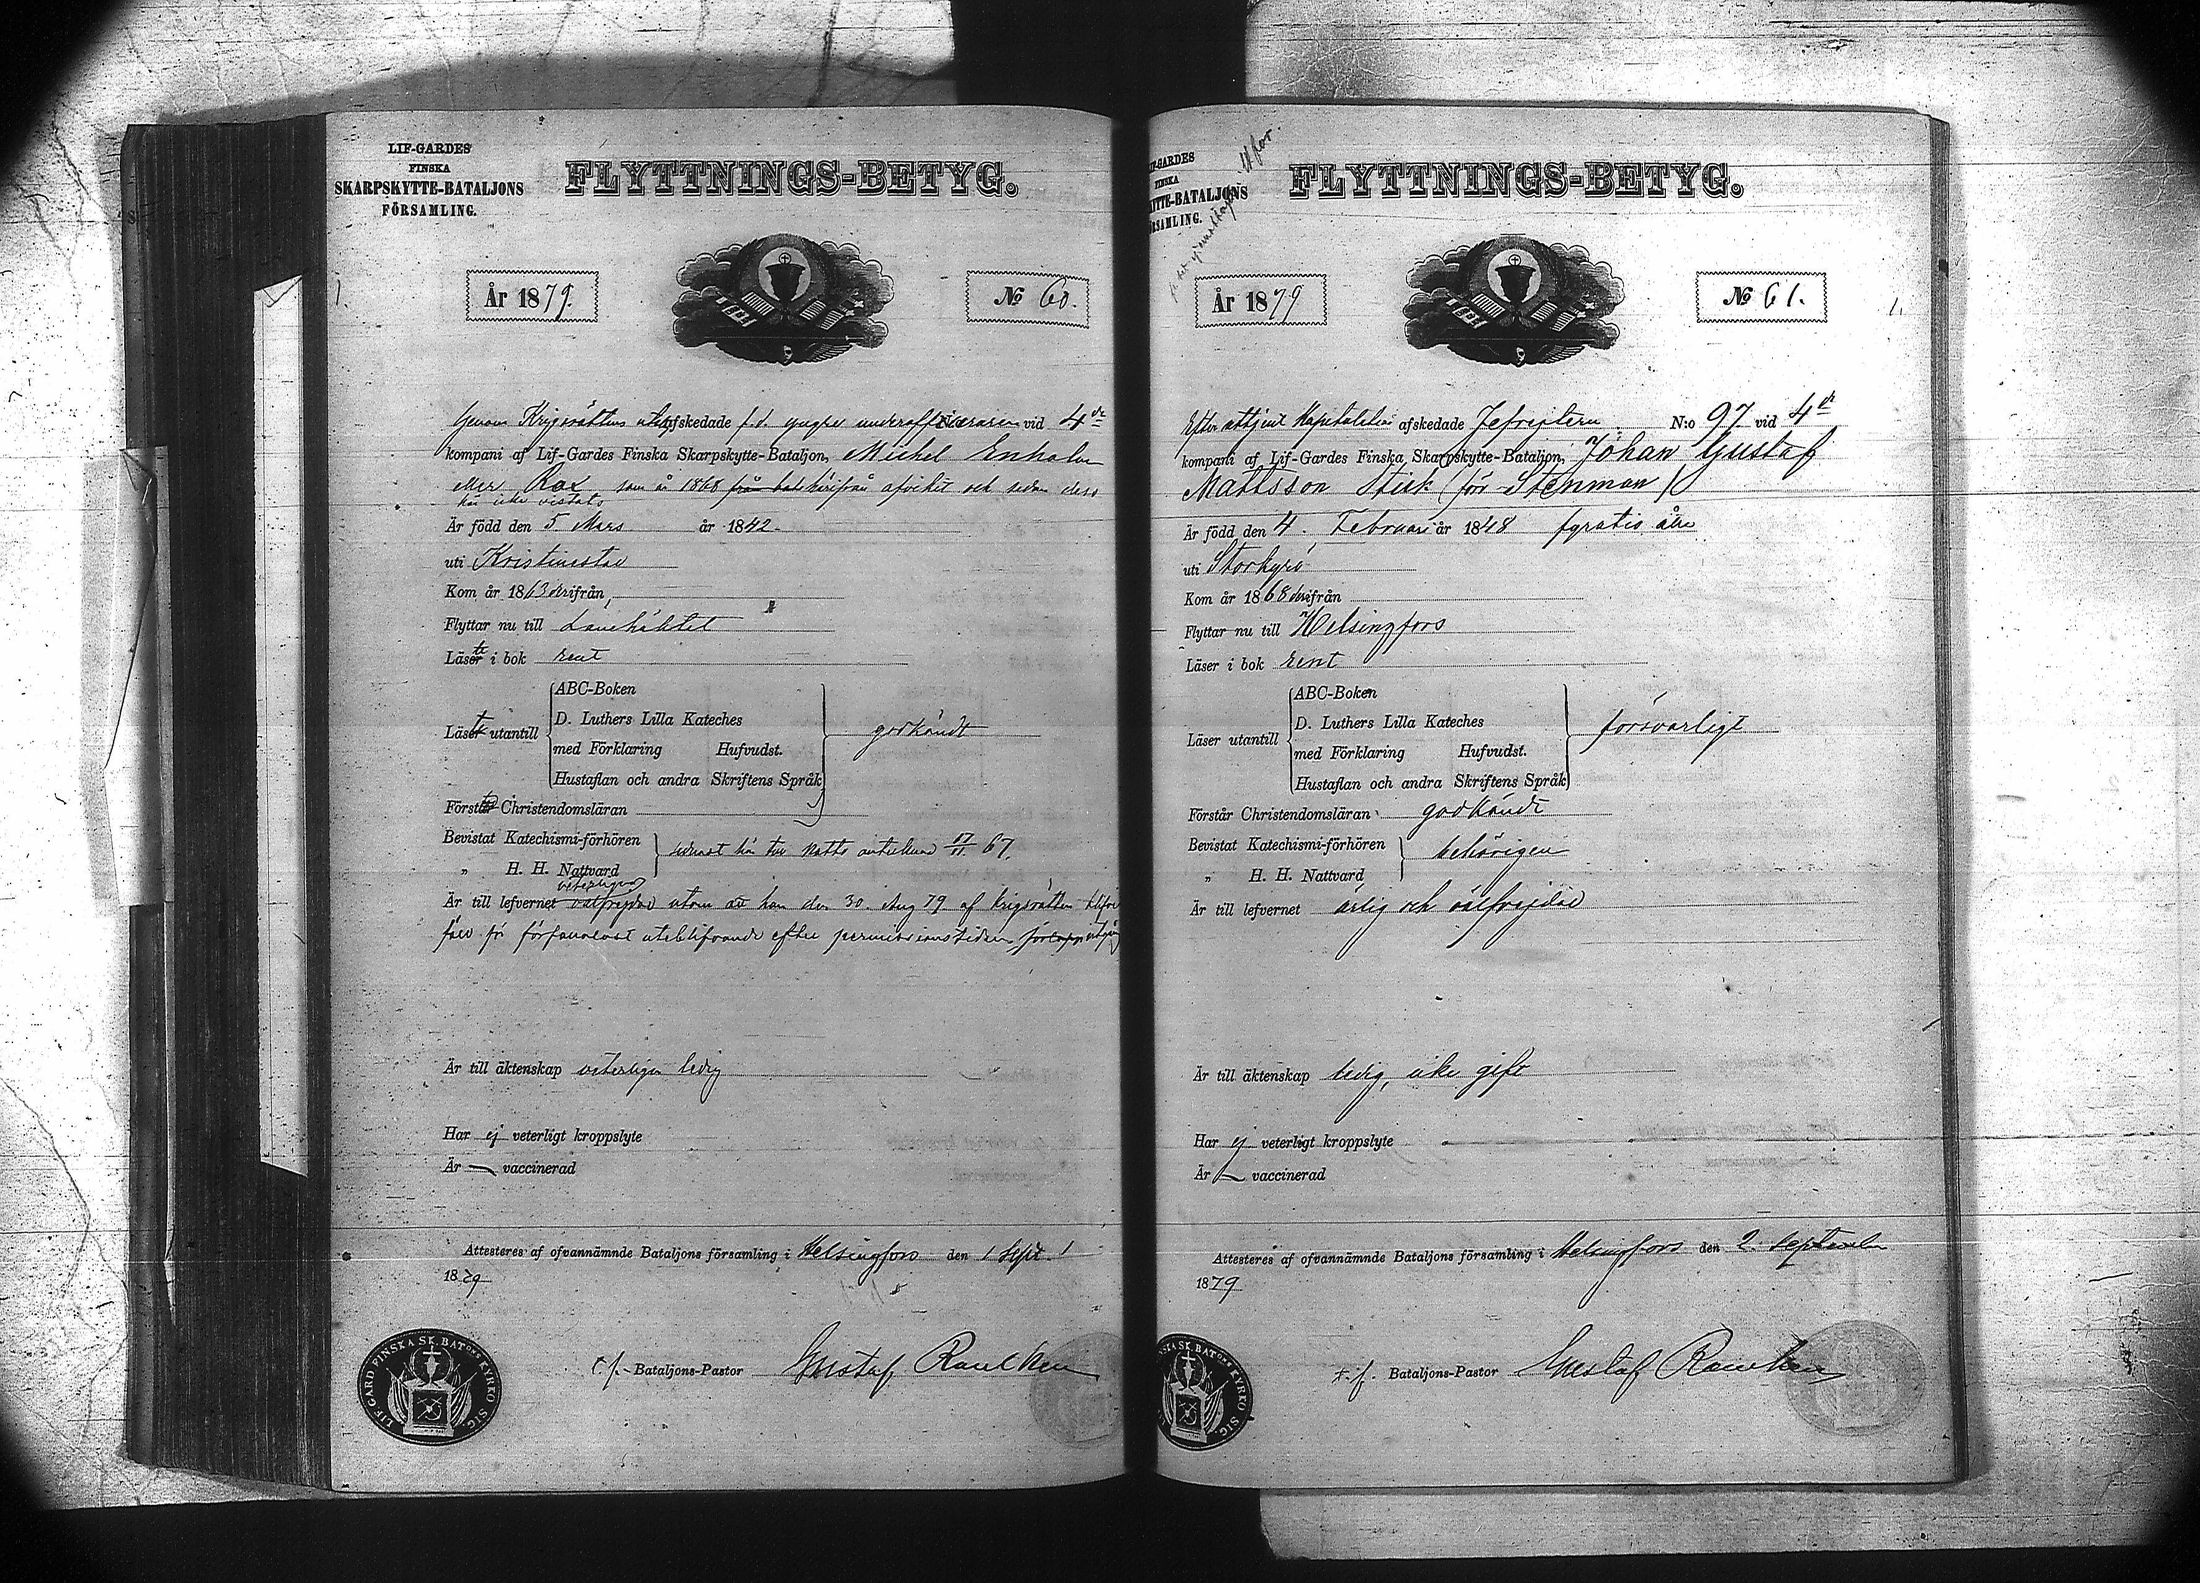 LIF-GARDES
FINSKA
SKARPSKYTTE-BATALJONS
FÖRSAMLING.
FLYTTNINGS-BETYG.
1.
År 1879.
No 60.
Genom Krigsrättens afskedade f. d. yngre underofficeraren vid 4de
kompani af Lif-Gardes Finska Skarpskytte-Bataljon, Michel Enholm
eller som år 1868 härifrån afvikit och sedan dess
här icke vistats
Är född den 5 Mars år 1842.
uti Kristinestad
Kom år 1863 derifrån,
Flyttar nu till Länehäktet
Läste i bok rent
ABC-Boken
D. Luthers Lilla Kateches
Läst utantill godkändt
med Förklaring Hufvudst.
Hustaflan och andra Skriftens Språk
Förstår Christendomsläran
Bevistat Katechismi-förhören
senast här till Nattv 67.
„ H. H. Nattvard
veterligen
Är till lefvernet välfrejdad utom att han den 30. Aug 79 af Krigsrätten blifvit
för uteblifvande efter permissionstiden
Är till äktenskap veterligen ledig
Har ej veterligt kroppslyte
Är — vaccinerad
Attesteras af ofvannämnde Bataljons församling i Helsingfors den 1 Sept.
1879
t. f. Bataljons-Pastor Gustaf
LIF-GARD. FINSKA SK. BATONS KYRKO SIG.
-GARDES
FINSKA
YTTE-BATALJONS
RSAMLING.
FLYTTNINGS-BETYG.
År 1879
No 61.
1.
Efter attjent Kapitulation afskedade Jefrejtern N:o 97 vid 4de
kompani af Lif-Gardes Finska Skarpskytte-Bataljon, Johan Gustaf
Mattsson Stick (för Stenman)
Är född den 4. Februari år 1848
uti Storkyrö
Kom år 1868 derifrån
Flyttar nu till Helsingfors
Läser i bok rent
ABC-Boken
D. Luthers Lilla Kateches
Läser utantill försvarligt
med Förklaring Hufvudst.
Hustaflan och andra Skriftens Språk
Förstår Christendomsläran godkändt
Bevistat Katechismi-förhören
behörigen
„ H. H. Nattvard
Är till lefvernet ärlig och välfrejdad
Är till äktenskap ledig, icke gift
Har ej veterligt kroppslyte
Är — vaccinerad
Attesteras af ofvannämnde Bataljons församling i Helsingfors den 2. September
1879
t. f. Bataljons-Pastor Gustaf
NSKA SK. BATONS KYRKO SIG.